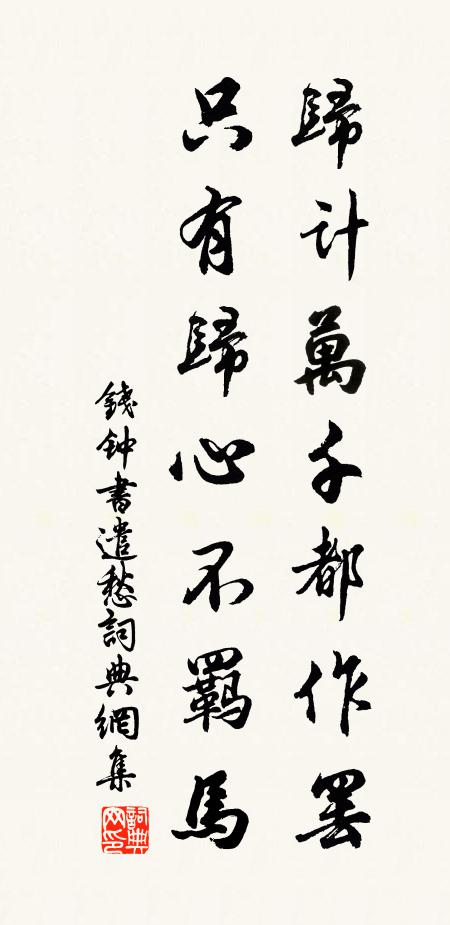 歸計萬千都作罷
只有歸心不羈馬
錢钟書遣愁詞典網集
詞典网印